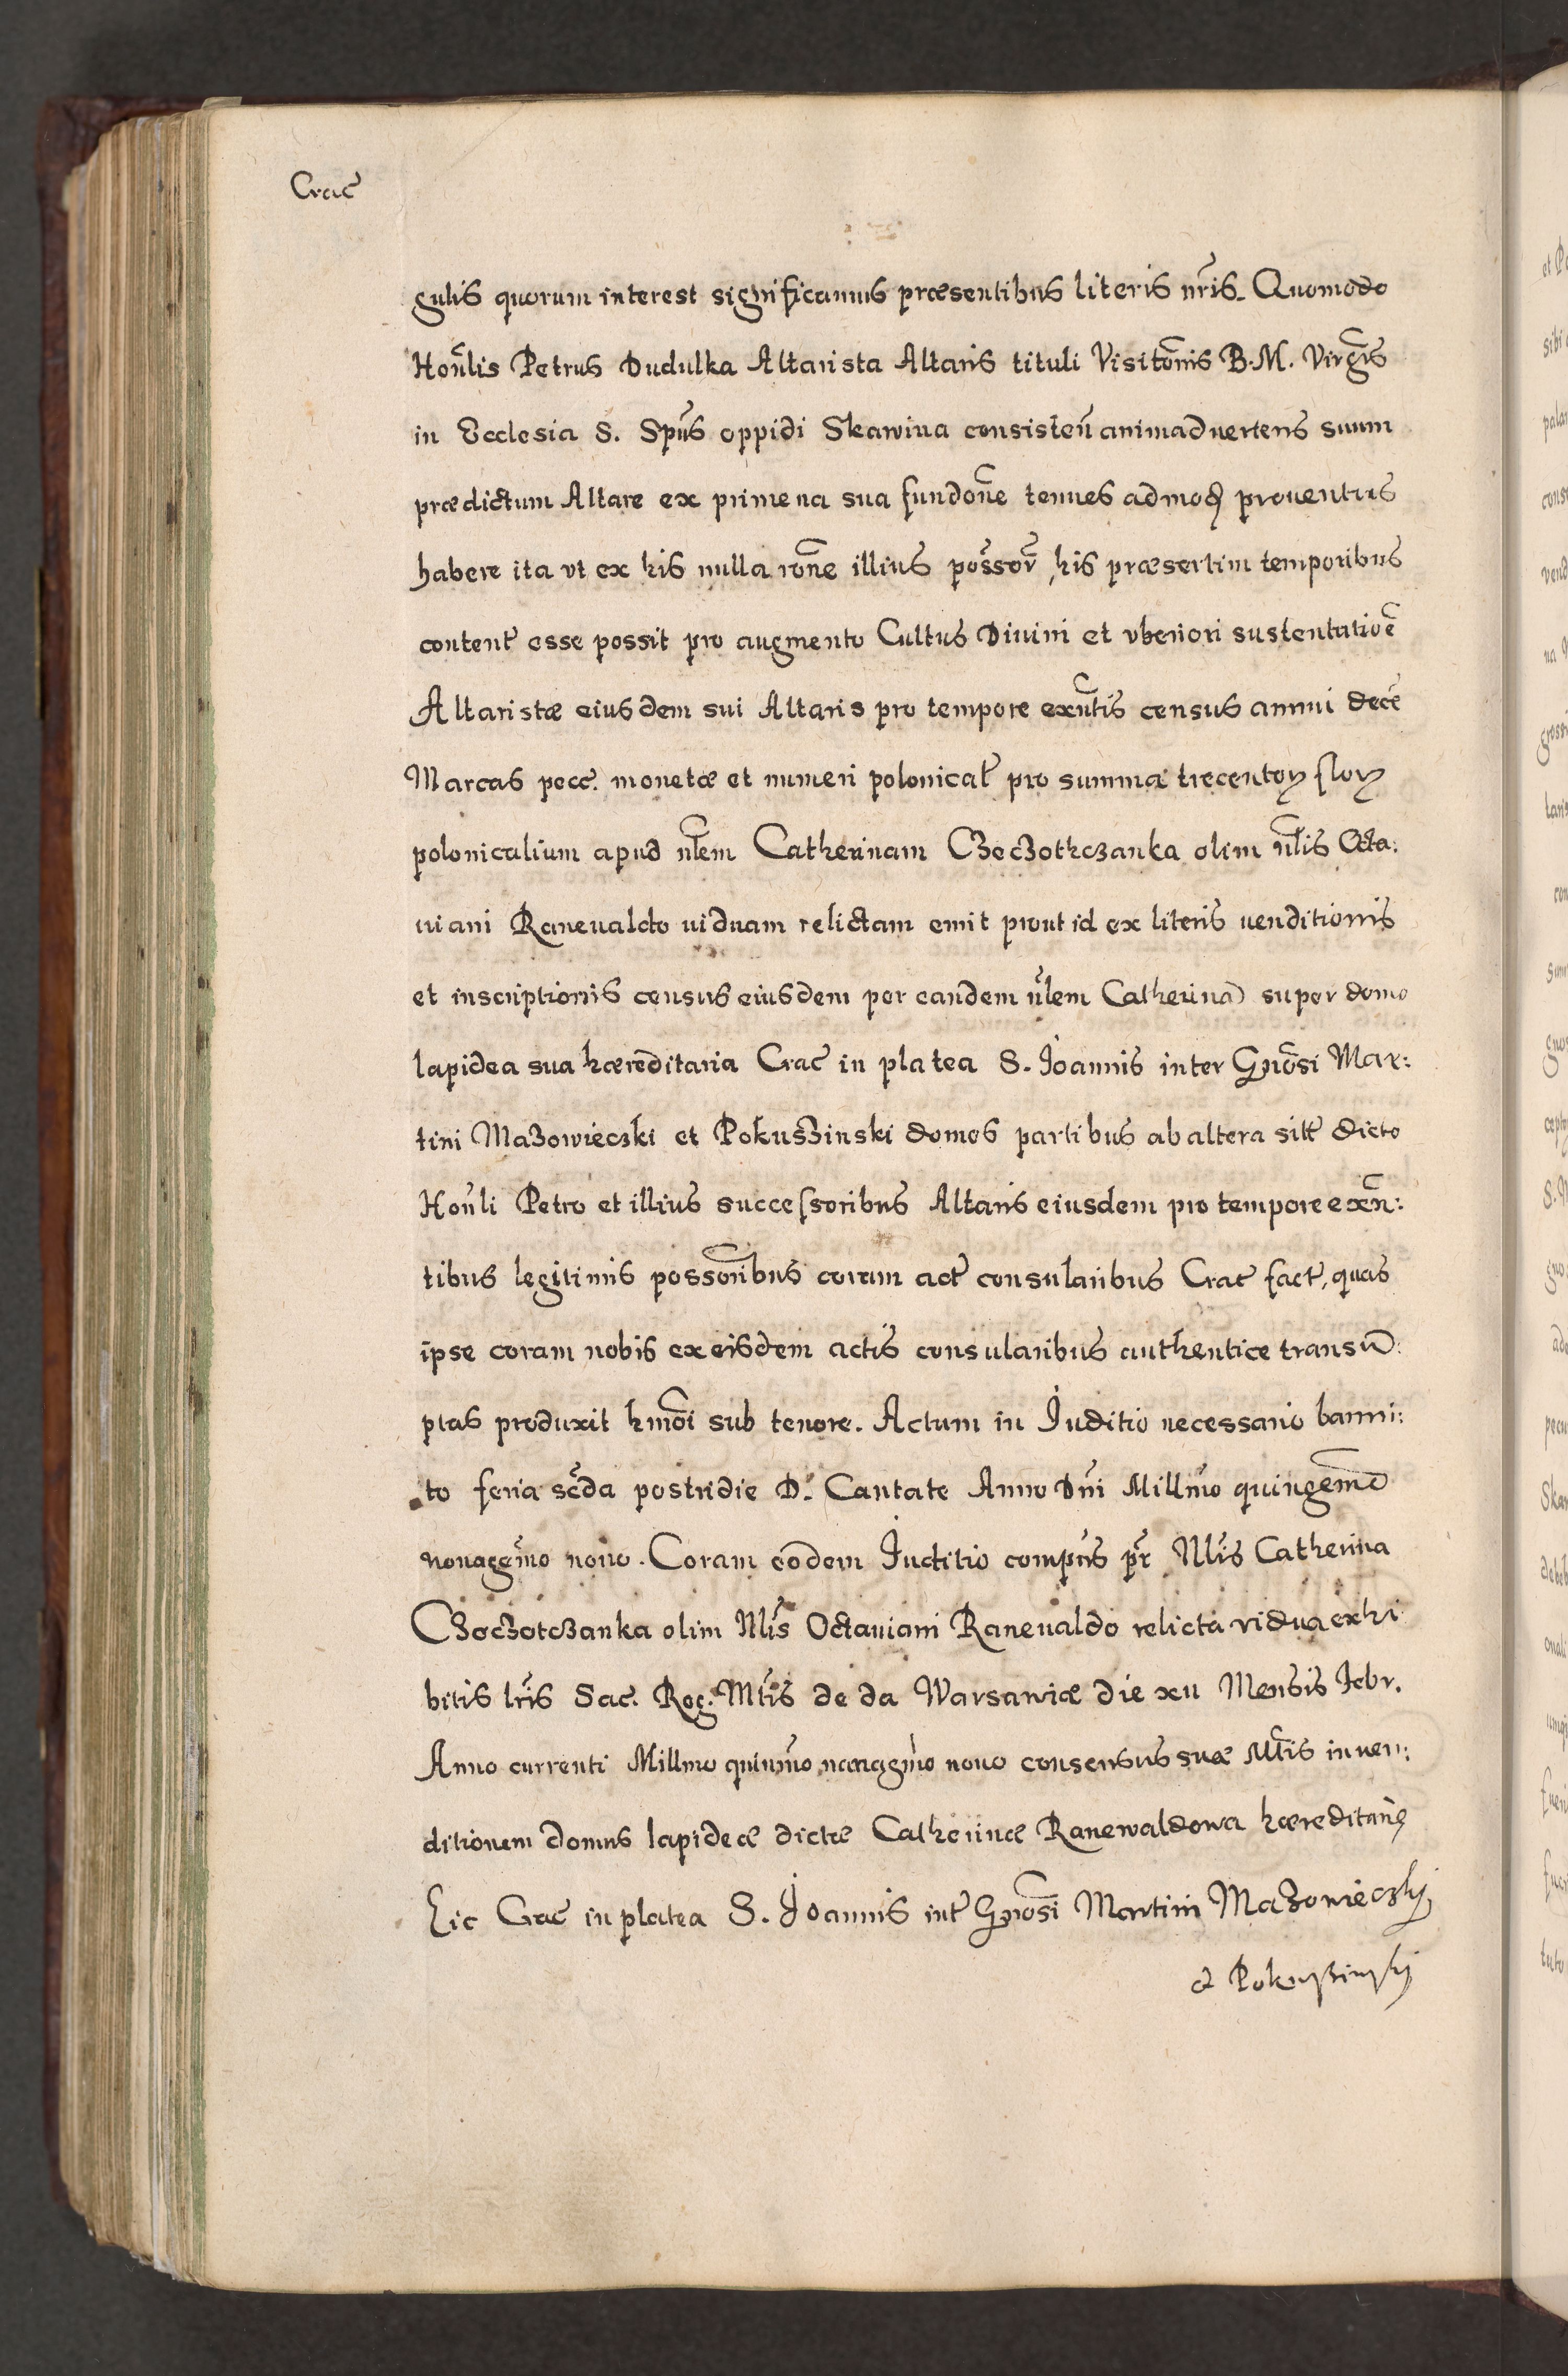 Crac̃
gulis quorum interest significamus præsentibus literis nr̃is. Quomodo
Hon̄lis Petrus Dudulka Altarista Altaris tituli Visitõnis B. M. Virgĩs
in Ecclesia S. Sp̃us oppidi Skawina consisteñ animaduertens suum
prædictum Altare ex primeua sua fundõne tenues admoḋ prouentus
habere ita vt ex his nulla rõne illius poss̃or̃, his præsertim temporibus
content̃ esse possit pro augmento Cultus Diuini et vberiori sustentatiõe
Altaristæ eiusdem sui Altaris pro tempore exñtis census annui decẽ
Marcas pecc̃. monetæ et numeri polonical̃ pro summa trecentoꝝ floꝝ
polonicalium apud n̄lem Catherinam Czeczothczanka olim n̄lis Octa:
uiani Raneualdo uiduam relictam emit prout id ex literis uenditionis
et inscriptionis census eiusdem per eandem n̄lem Catherinā super domo
lapidea sua hæreditaria Crac̃ in platea S. Joannis inter Gñosi Mar:
tini Mazowieczki et Pokuszinski domos partibus ab altera sitt̃ dicto
Hon̄li Petro et illius successoribus Altaris eiusdem pro tempore exñ:
tibus legitimis possõribus coram act̃ consularibus Crac̃ fact̃, quas
ipse coram nobis ex eisdem actis consularibus authentice transū:
ptas produxit hmõi sub tenore. Actum in Juditio necessario banni:
to feria sc̃da postridie D. Cantate Anno Dñi Millm̃o quingem̃o
nonagem̃o nono. Coram eõdem Juditio comp̃ns pr̃ Nl̃is Catherina
Czeczotczanka olim Nl̃is Octauiani Raneualdo relicta vidua exhi
bitis lr̃is Sac. Reg. Mt̃is de da Warsawiæ die xu Mensis Febr.
Anno currenti Millmo quinm̃o nonagm̃o nono consensus suæ Mt̃is in uen:
ditionem domus lapideæ dictæ Catherinæ Ranewaldowa hæreditarię
hic Crac̃ in platea S. Joannis int̃ Gñosi Martini Mazowieczkj
et Pokuszinskj